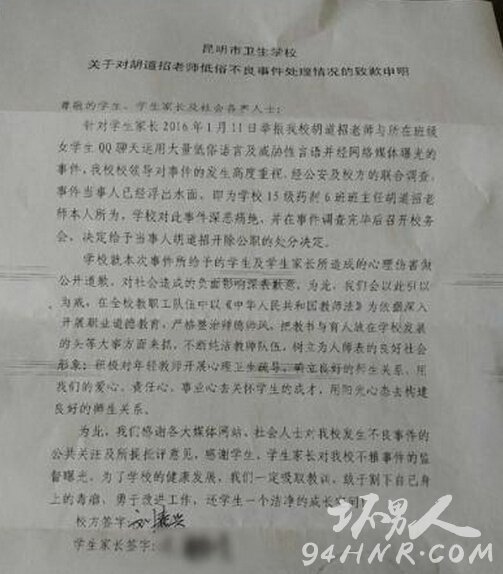 昆明市卫生学校
关于对胡道招老师低俗不良事件处理情况的致歉申明
尊敬的学生、学生家长及社会各界人士:
针对学生家长2016年1月11日举报我校胡道招老师与所在班级
女学生QQ聊天运用大量低俗语言及威胁性言语并经网络媒体曝光的
事件,我校校领导对事件的发生高度重视。经公安及校方的联合调查,
事件当事人已经浮出水面,即为学校15级药剂6班班主任胡道招老
师本人所为,学校对此事件深恶痛绝,并在事件调查完毕后召开校务
会,决定给予当事人胡道招开除公职的处分决定。
学校就本次事件所给予的学生及学生家长所造成的心理伤害做
公开道歉,对社会造成的负面影响深表歉意。为此,我们会以此引以
为戒,在全校教职工队伍中以《中华人民共和国教师法》为依据深入
开展职业道德教育,严格整治师德师风,把教书与育人放在学校发展
的头等大事方面来抓,不断纯洁教师队伍,树立为人师表的良好社会
形象;积极对年轻教师开展心理卫生疏导,确立良好的师生关系,用
我们的爱心、责任心、事业心去关怀学生的成才,用阳光心态去构建
良好的师生关系。
为此,我们感谢各大媒体网站、社会人士对我校发生不良事件的
公共关注及所提批评意见,感谢学生、学生家长对我校不雅事件的监
督曝光,为了学校的健康发展,我们一定吸取教训,敢于割下自己身
上的毒瘤,勇于改进工作,还学生一个洁净的成长空间!
校方签字:
学生家长签字:
坏男人
94HNR.COM